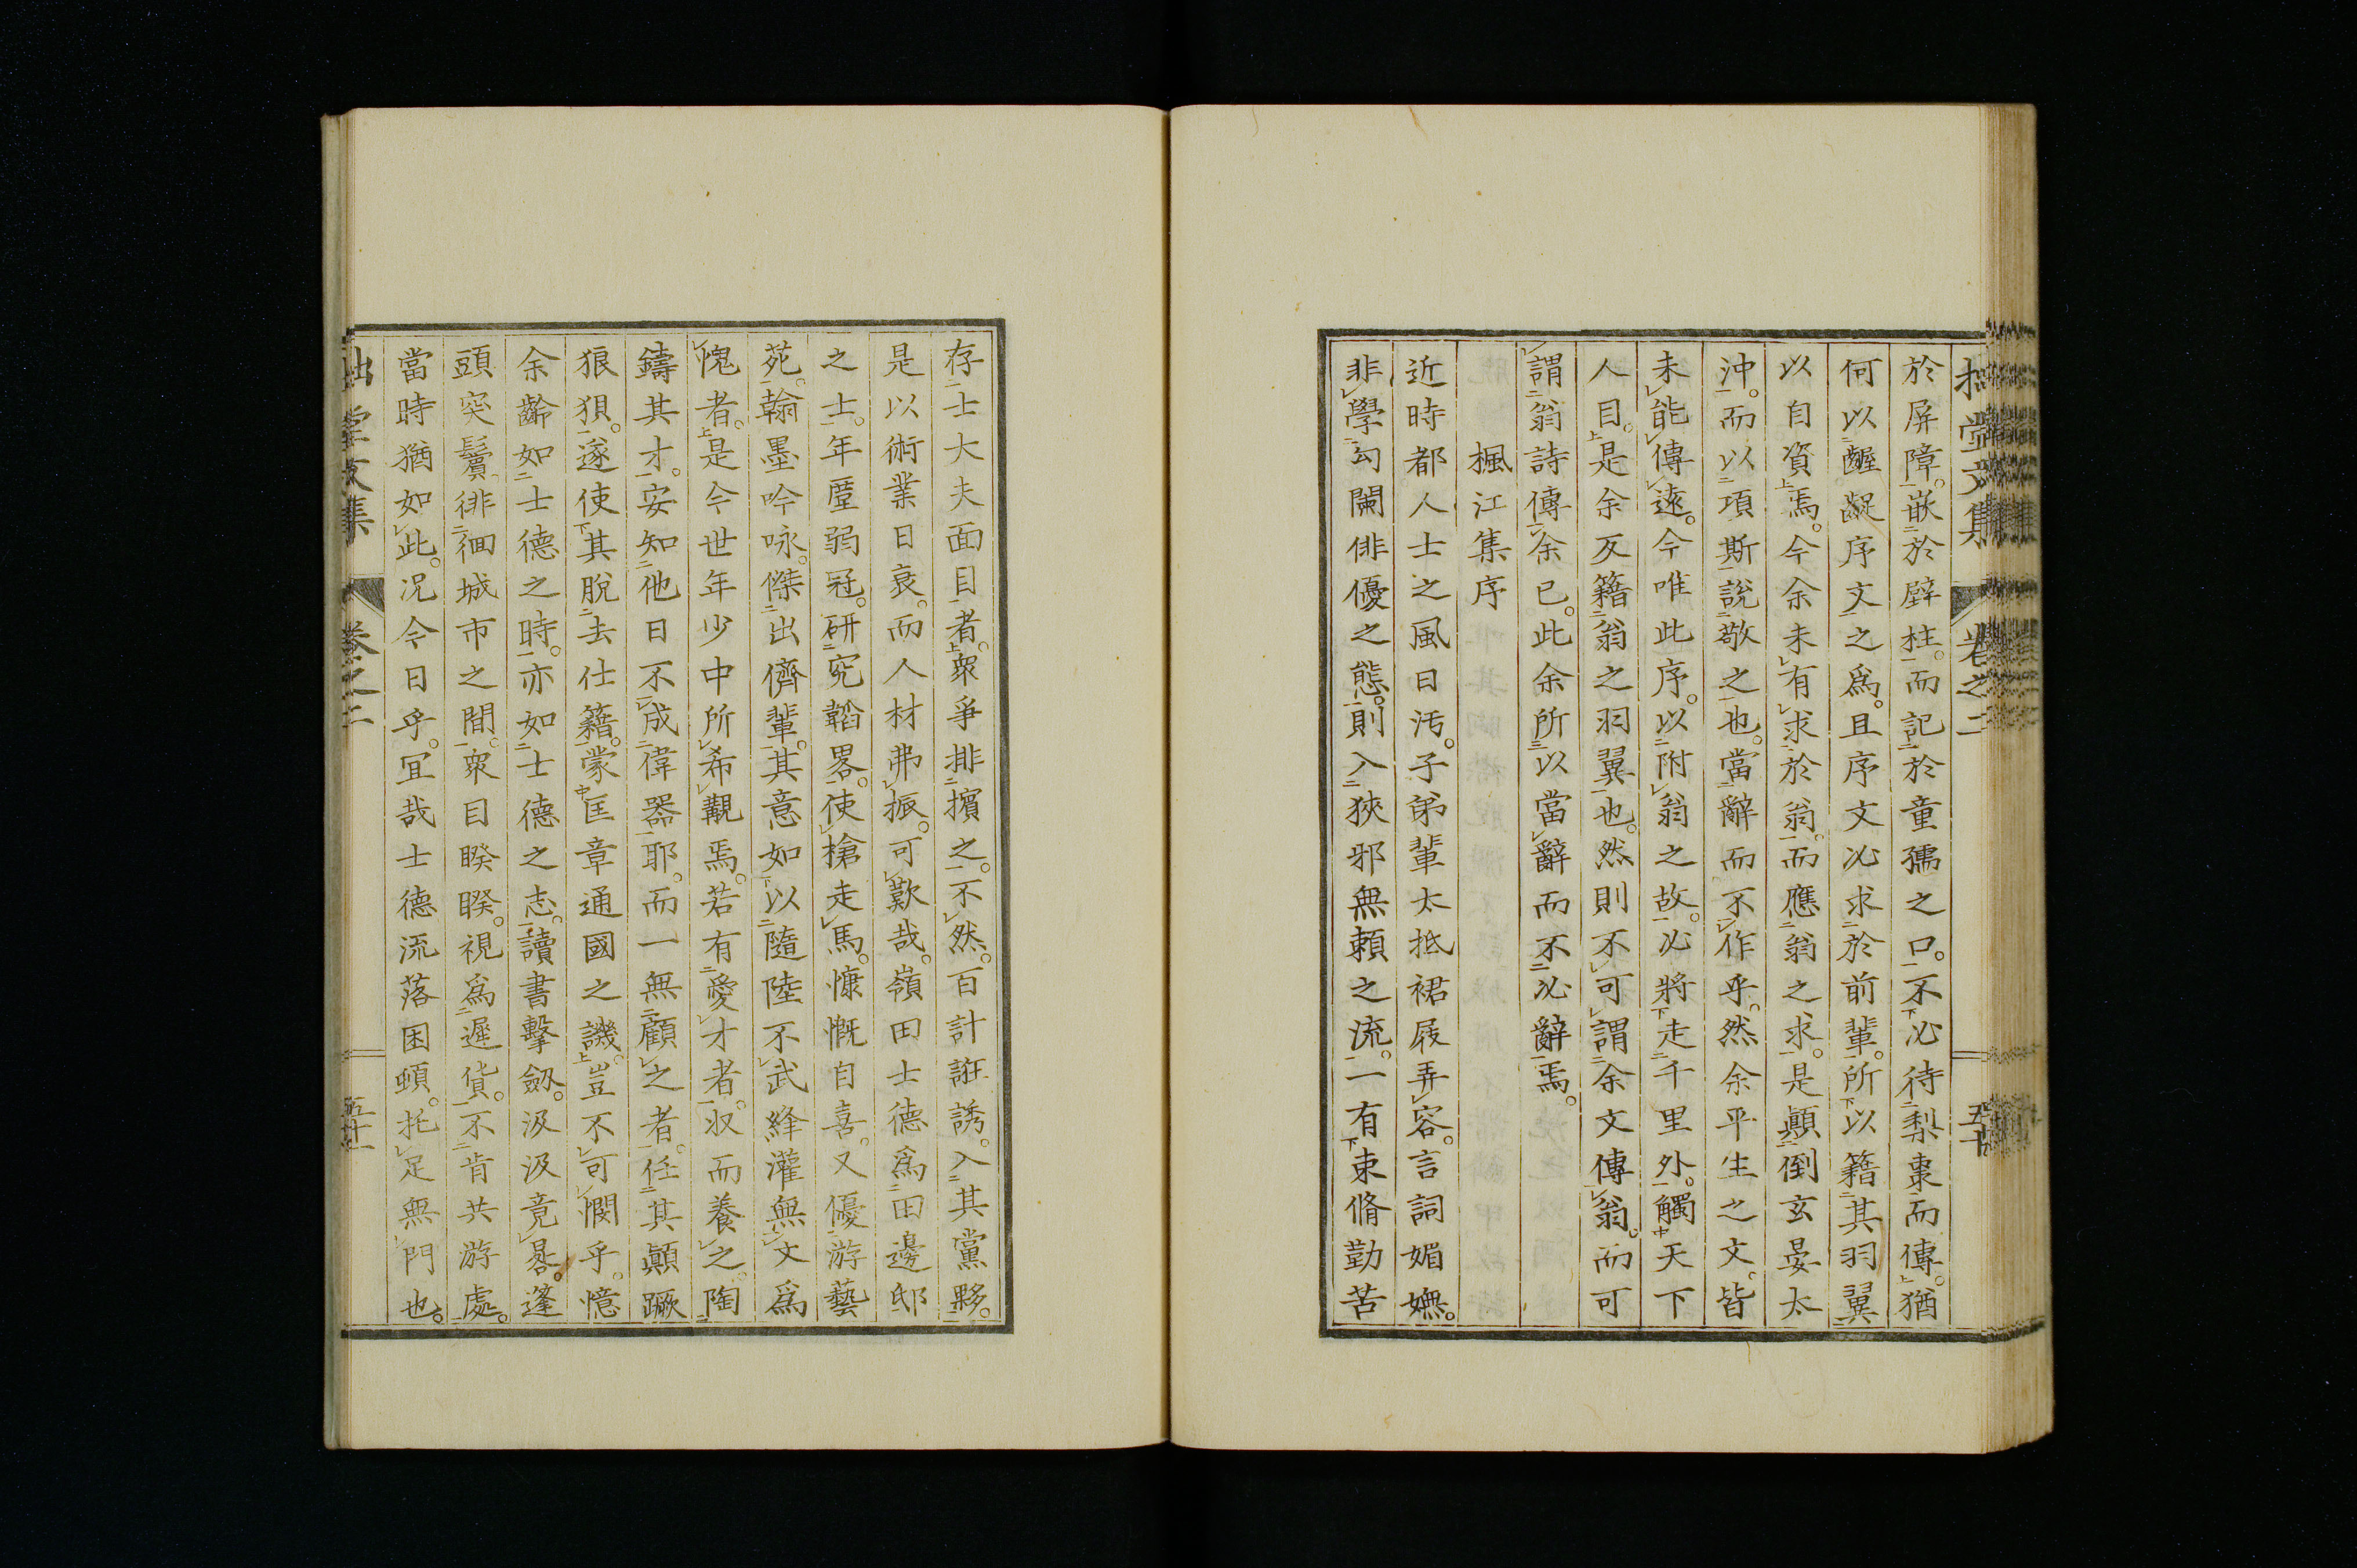 拙堂文集 卷之二 五十
於屏障。嵌於壁柱。而記於童孺之口。不必待梨棗而傳。猶
何以齷齪序文之爲。且序文必求於前輩。所以籍其羽翼
以自資焉。今余未有求於翁。而應翁之求。是顚倒玄晏太
沖。而以項斯說敬之也。當辭而不作乎。然余平生之文。皆
未能傳遠。今唯此序。以附翁之故。必將走千里外。觸天下
人目。是余反籍翁之羽翼也。然則不可謂余文傳翁。而可
謂翁詩傳余已。此余所以當辭而不必辭焉。
楓江集序
近時都人士之風日汚。子弟輩太抵裙屐弄容。言詞媚嫵。
非學勾闌俳優之態。則入狹邪無賴之流。一有束脩勤苦
存士大夫面目者。衆爭排擯之。不然。百計誑誘。入其黨夥。
是以術業日衰。而人材弗振。可歎哉。嶺田士德爲田邊邸
之士。年厪弱冠。研究韜畧。使槍走馬。慷慨自喜。又優游藝
苑。翰墨吟咏。傑出儕輩。其意如以隨陸不武絳灌無文爲
愧者。是今世年少中所希覯焉。若有愛才者。収而養之。陶
鑄其才。安知他日不成偉器耶。而一無顧之者。任其顚蹶
狼狽。遂使其脫去仕籍。蒙匡章通國之譏。豈不可憫乎。憶
余齡如士德之時。亦如士德之志。讀書擊劔。汲汲竟晷。蓬
頭突鬢。徘徊城市之間。衆目睽睽。視爲遲貨。不肯共游處。
當時猶如此。况今日乎。冝哉士德流落困頓。托足無門也。
拙堂文集 卷之二 五十一